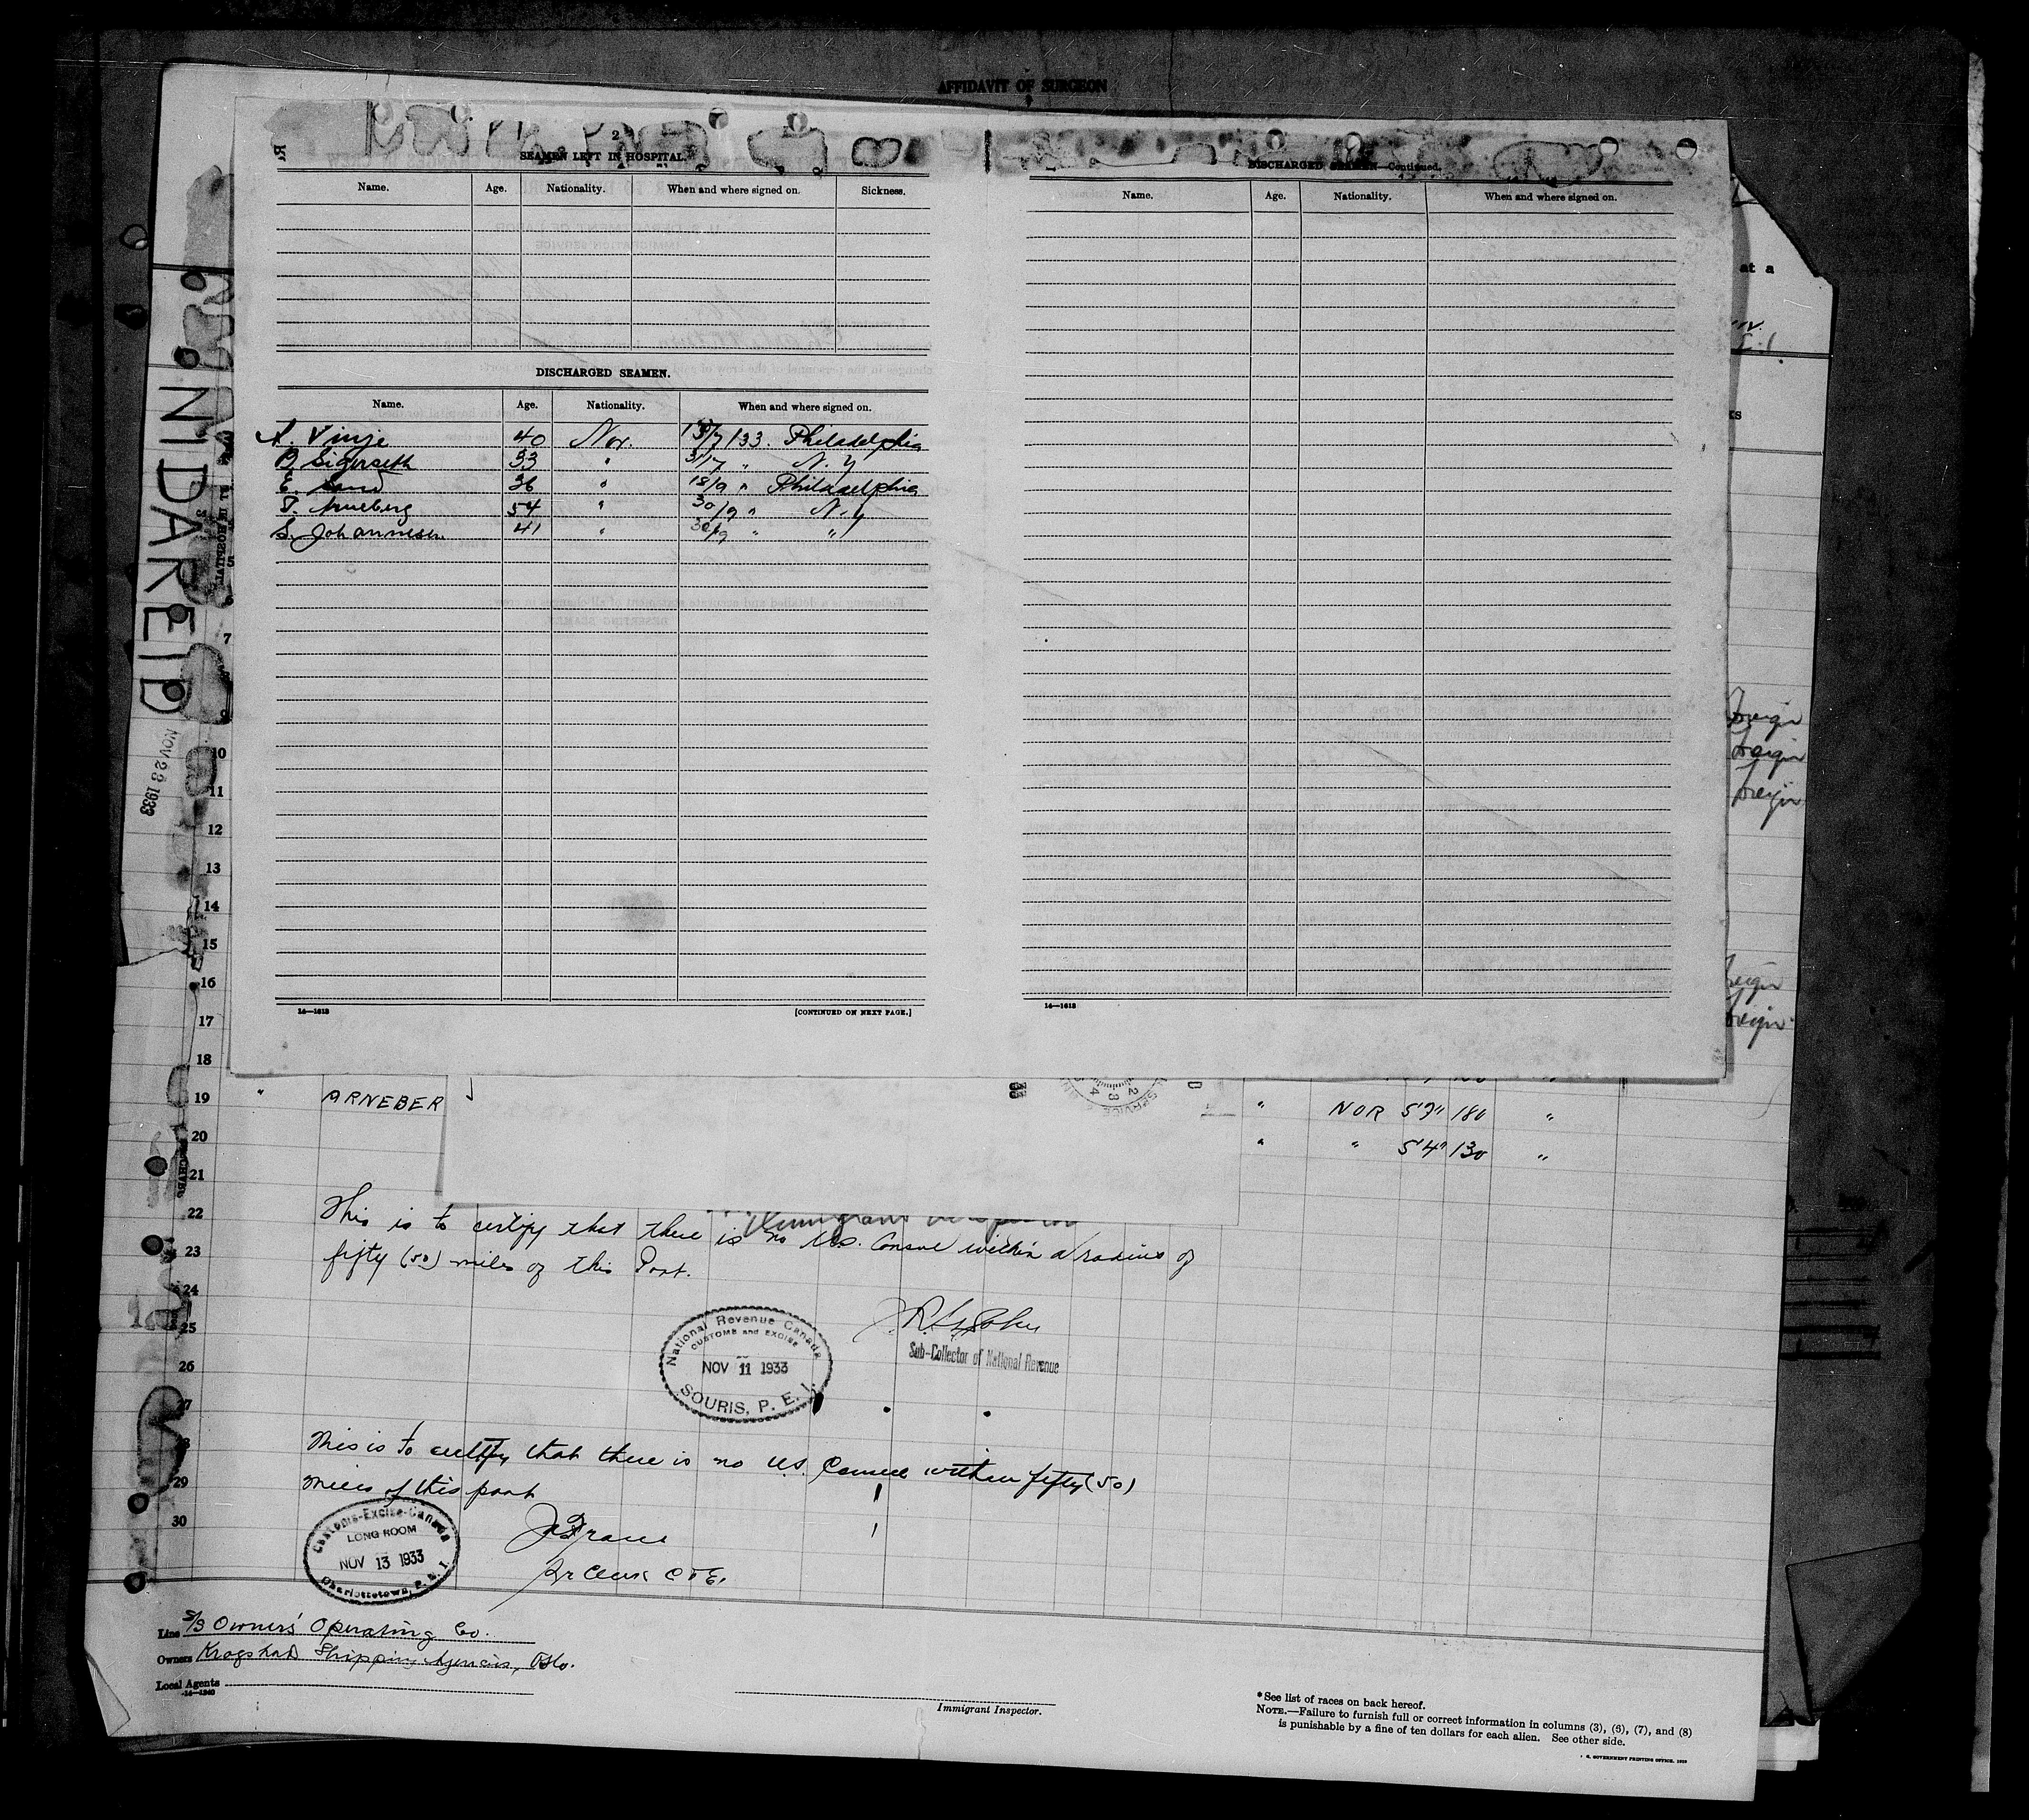 AFFIDAVIT OF SURGEON
2
SEAMEN LEFT IN HOSPITAL.
Name. Age. Nationality. When and where signed on. Sickness.
DISCHARGED SEAMEN.
Name. Age. Nationality. When and where signed on.
A. Vinje 40 Nor. /7/33. Philadelphia
B. Sigerseth 33 " 31/7 " N.Y
E. Sand 36 " 18/9 " Philadelphia
T. Arneberg 54 " 30/9 " N.Y
S. Johannesen 41 " 30/9 " "
14—1613 [CONTINUED ON NEXT PAGE.]
DISCHARGED SEAMEN—Continued.
Name. Age. Nationality. When and where signed on.
14—1613
NIDAREID
NOV 28 1933
at a
5
6
7
8
9
10
11
12
13
14
15
16
17
18
19 " ARNEBER " NOR 5'9" 180 "
20 " " 5'4" 130 "
21
22
23
24
25
26
27
28
29
30
foreign
foreign
foreign
foreign
foreign
Immigrant Inspector
This is to certify that there is no U.S. Consul within a radius of
fifty (50) miles of this Port.
National Revenue Canada
CUSTOMS and EXCISE
NOV 11 1933
SOURIS, P. E. I.
Sub-Collector of National Revenue
This is to certify that there is no U.S. Consul within fifty (50)
miles of this port
Customs-Excise-Canada
LONG ROOM
NOV 13 1933
Charlottetown, P. E. I.
Clerk C & E.
Line S/S Owners' Operating Co.
Owners Krogstad Shipping Agencies, Oslo.
Local Agents
14—1240
Immigrant Inspector.
*See list of races on back hereof.
NOTE.—Failure to furnish full or correct information in columns (3), (6), (7), and (8)
is punishable by a fine of ten dollars for each alien. See other side.
GOVERNMENT PRINTING OFFICE